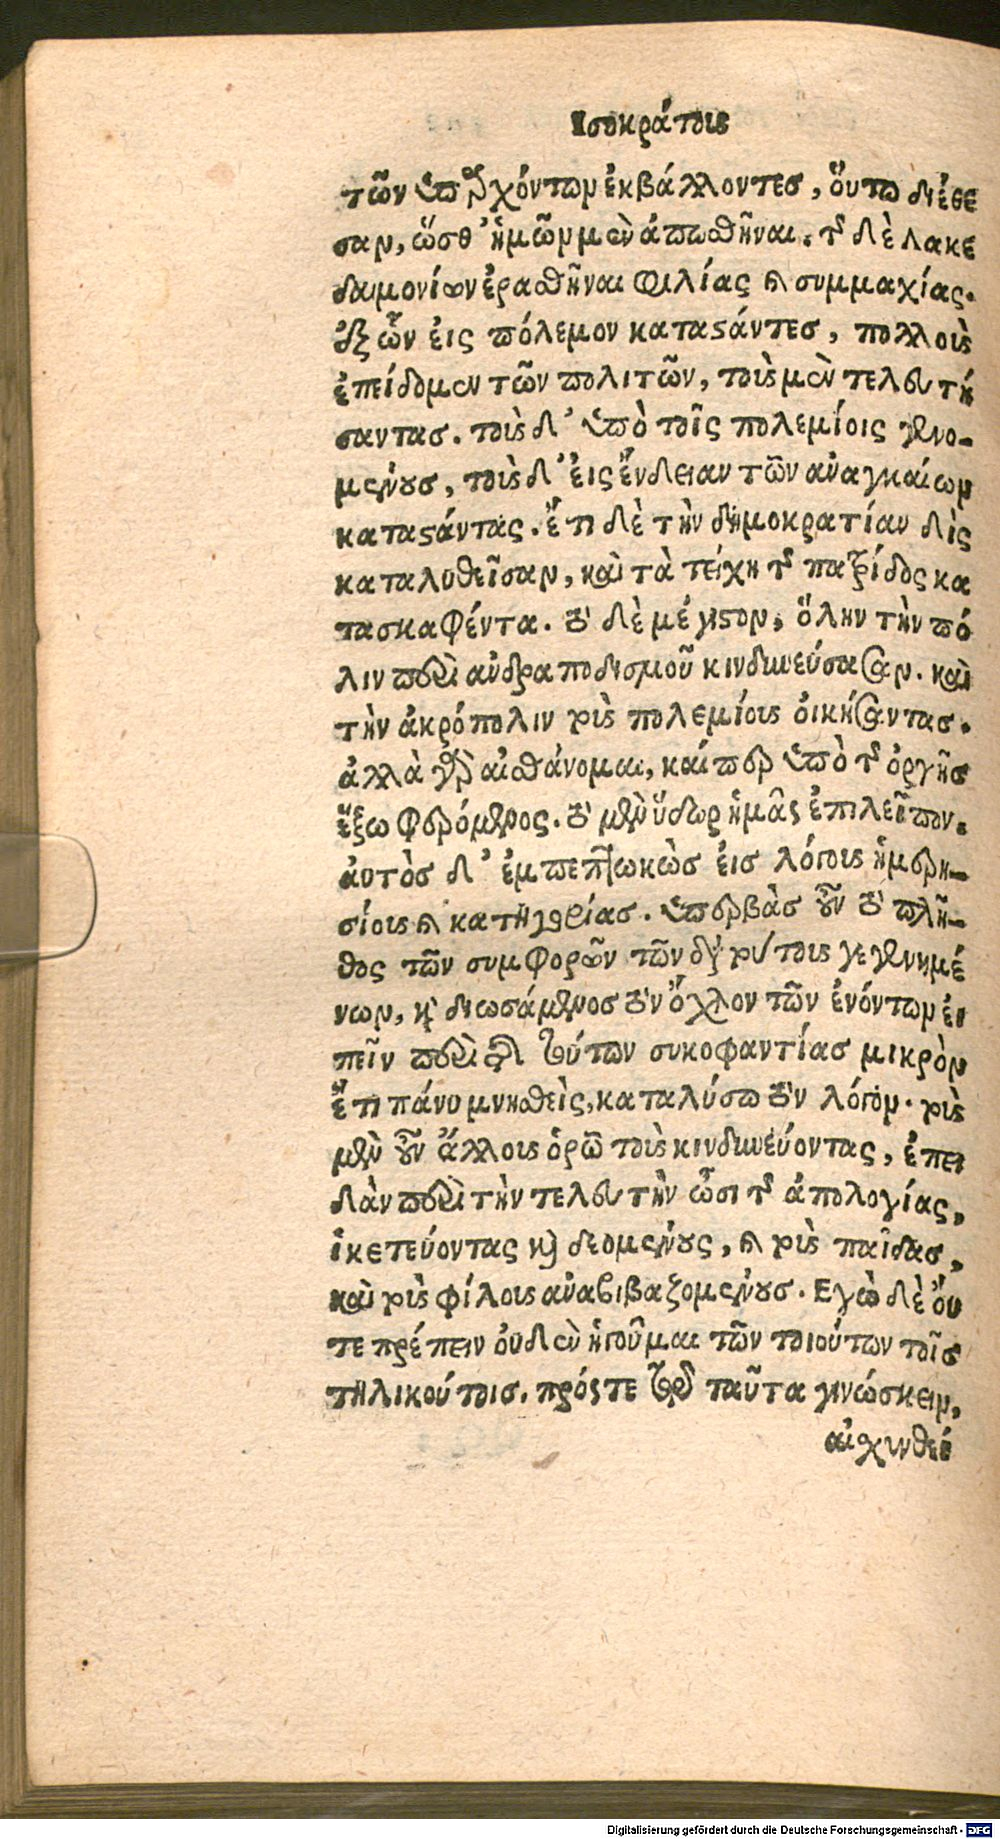 Ισοκράτους
τῶν ὑπαρχόντων ἐκβάλλοντες, ὅυτω διέθε
σαν, ὥσθ' ἡμῶν μὲν ἀπωσθῆναι. τ͂ δὲ λακε
δαιμονίων ἐρασθῆναι φιλίας καὶ συμμαχίας.
ἐξ ὧν ἐις πόλεμον καταστάντες, πολλοὺς
ἐπείδομεν τῶν πολιτῶν, τοὺς μὲν τελευτή
σαντας. τοὺς δ' ὑπὸ τοῖς πολεμίοις γενο-
μένους, τοὺς δ' ἐις ἔνδειαν τῶν ἀναγκαίων
καταστάντας. ἔτι δὲ τὴν δημοκρατίαν δὶς
καταλυθεῖσαν, καὶ τὰ τείχη τῆς πατρίδος κα
τασκαφέντα. τὸ δὲ μέγιστον, ὅλην τὴν πό
λιν περὶ ἀνδραποδισμοῦ κινδυνεύσασαν. καὶ
τὴν ἀκρόπολιν τοὺς πολεμίους ὀικήσαντας.
ἀλλὰ γὰρ αἰσθάνομαι, καίπερ ὑπὸ τῆς ὀργῆς
ἔξω φερόμενος. τὸ μὲν ὕδωρ ἡμᾶς ἐπιλεῖπον.
ἀυτὸς δ' ἐμπεπτωκὼς ἐις λόγους ἡμερη-
σίους καὶ κατηγορίας. ὑπερβὰς οὖν τὸ πλῆ-
θος τῶν συμφορῶν τῶν διὰ τούτους γεγενημέ
νων, καὶ διωσάμενος τὸν ὄχλον τῶν ἐνόντων ἐι
πεῖν περὶ τῆς τούτων συκοφαντίας μικρὸν
ἔτι πάνυ μνησθεὶς, καταλύσω τὸν λόγον. τοὺς
μὲν οὖν ἄλλους ὁρῶ τοὺς κινδυνεύοντας, ἐπει
δὰν περὶ τὴν τελευτὴν ὦσι τῆς ἀπολογίας,
ἱκετεύοντας καὶ δεομένους, καὶ τοὺς παῖδας,
καὶ τοὺς φίλους ἀναβιβαζομένους. Εγὼ δὲ ὄυ
τε πρέπειν ὀυδὲν ἡγοῦμαι τῶν τοιούτων τοῖς
τηλικούτοις. πρός τε τῷ ταῦτα γινώσκειν,
αἰσχυνθεί